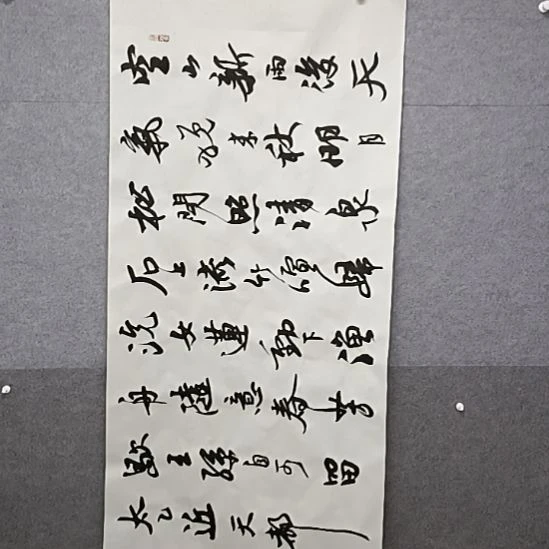 空山新雨後天
氣晚来秋明月
松間照清泉
石上流竹喧歸
浣女蓮動下漁
舟隨意春芳
歇王孫自可留
太乙近天都